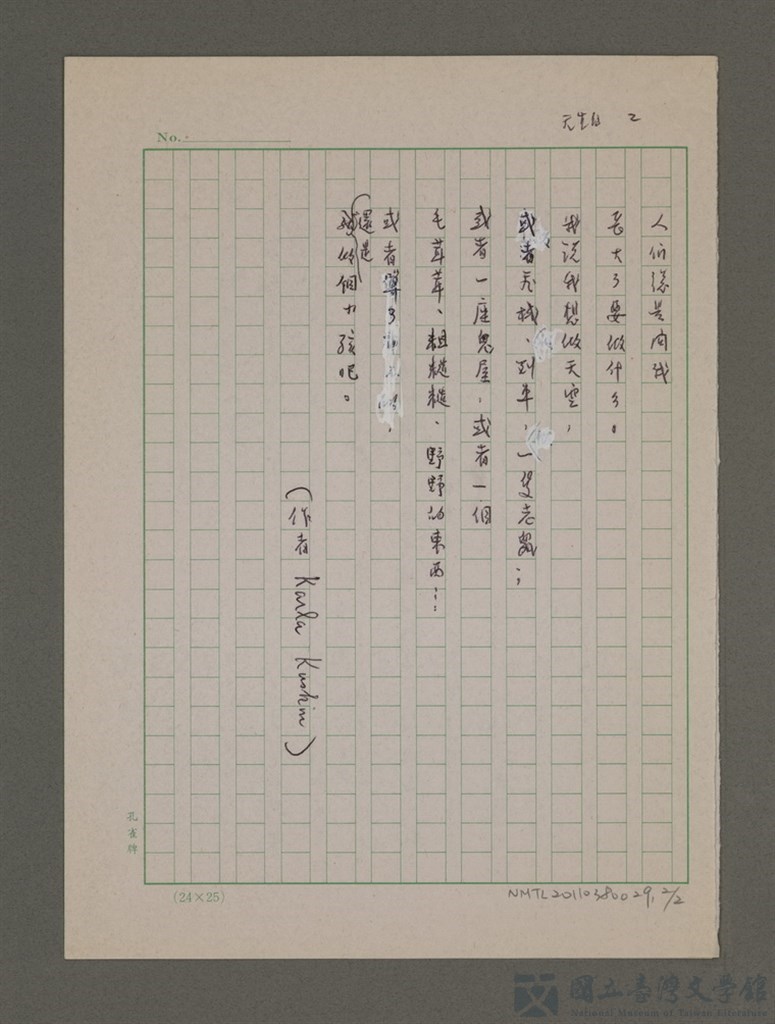 No.
2
人們總是問我
長大了要做什么。
我說我想做天空，
或者飛機、列車，一隻老鼠；
或者一座鬼屋，或者一個
毛茸茸、粗糙糙、野野的東西…
或者
還是
做個女孩吧。
（作者 Karla Kuskin）
孔雀牌
(24×25)
NMTL20110380029, 2/2
國立臺灣文學館
National Museum of Taiwan Literature